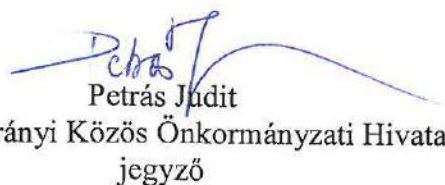 Petrás
Petrás Judit
rányi Közös Önkormányzati Hivata
jegyző